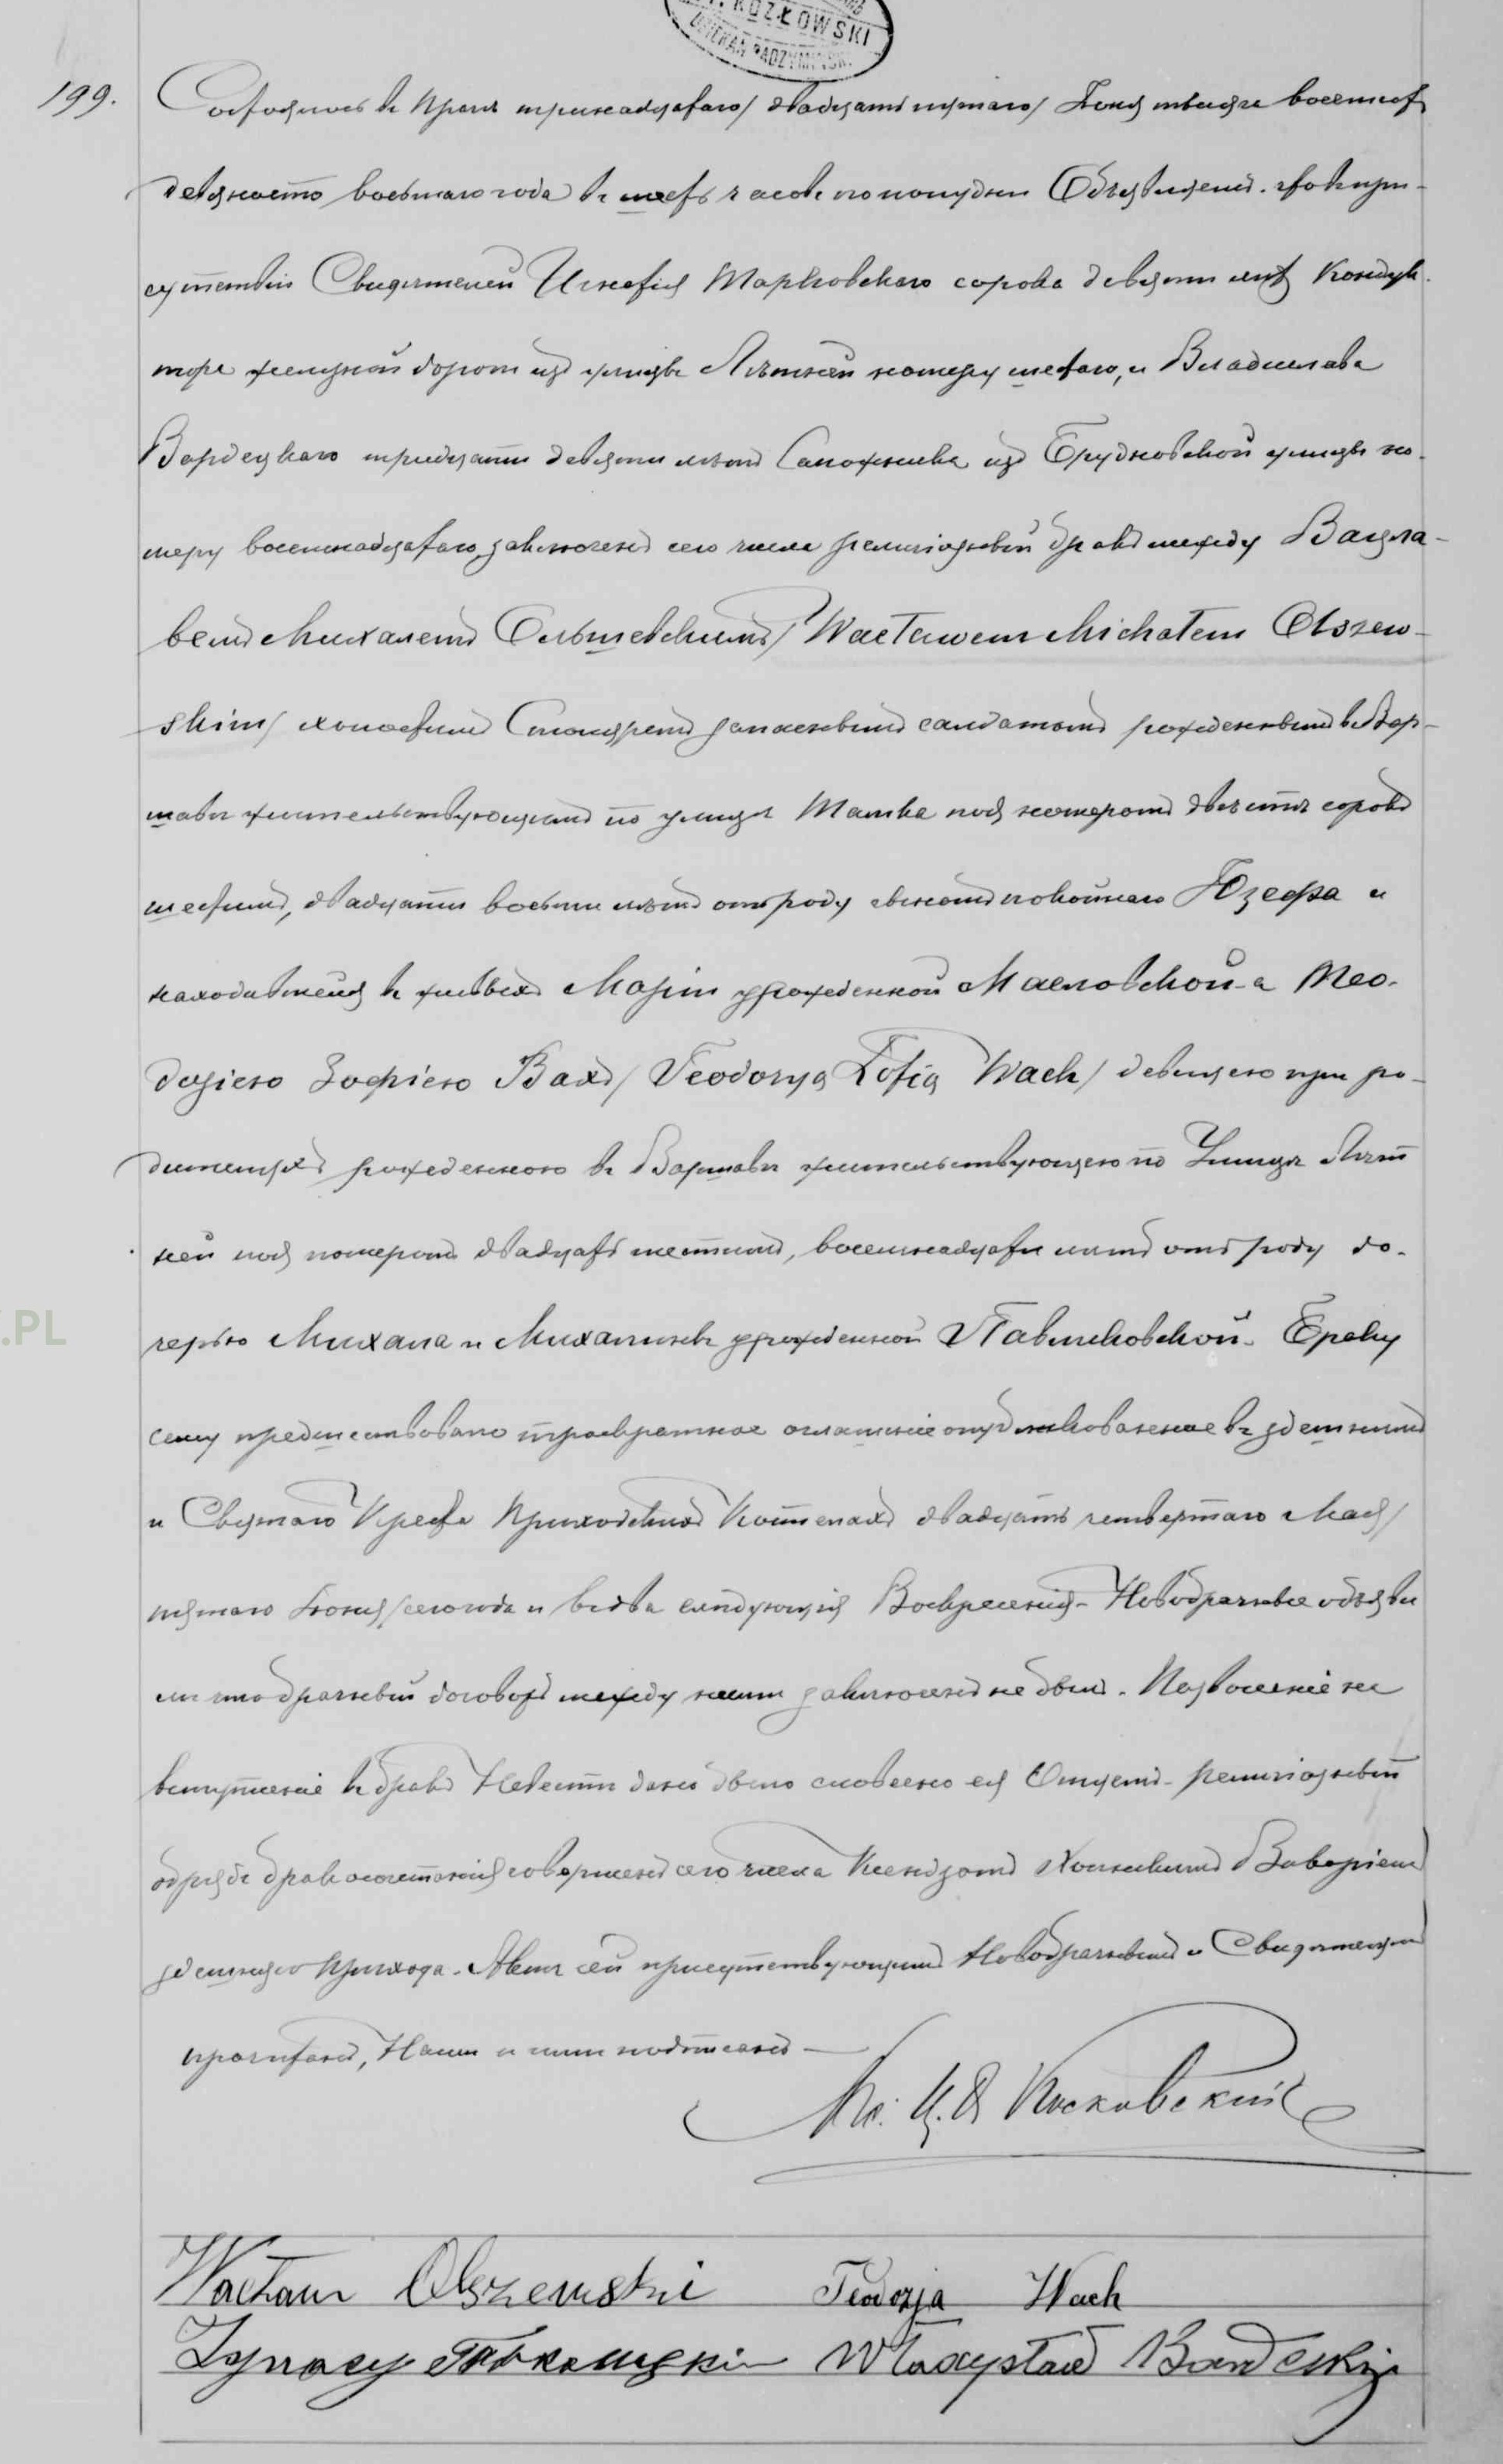 KOZŁOWSKI
DZIEKAN RADZYMIŃSKI
199. Состоялось въ Праге тринадцатаго/двадцать пятаго/Іюня тысяча восемсотъ
девяносто восьмаго года въ шесть часовъ по полудни. Объявляемъ, что въ при-
сутствіи Свидетелей Игнатія Тарковскаго сорока девяти летъ Кондук-
тора железной дороги изъ улицы Летней номеру шестаго, и Владислава
Бардецкаго тридцати девяти летъ Сапожника изъ Брудновской улицы но-
меру восемнадцатаго, заключенъ сего числа религіозный бракъ между Вацла-
вемъ Михалемъ Ольшевскимъ/Wacławem Michałem Olszew-
skim/холостымъ Столяремъ запаснымъ солдатомъ рожденнымъ въ Вар-
шаве жительствующимъ по улице Тамка подъ номеромъ двести сорокъ
шестымъ, двадцати восьми летъ отъ роду сыномъ покойнаго Юзефа и
находившейся въ живыхъ Маріи урожденной Масловской - а Тео-
дозіею Зофіею Вахъ/Teodozyą Zofią Wach/девицею при ро-
дителяхъ рожденною въ Варшаве жительствующею по Улице Лет
ней подъ номеромъ двадцать шестымъ, восемнадцати летъ отъ роду до-
черью Михала и Михалины урожденной Павликовской. Браку
сему предшествовало троекратное оглашеніе опубликованное въ здешнемъ
и Святаго Креста Приходскихъ Костелахъ двадцать четвертаго Мая/
пятаго Іюня/сего года и въ два следующія Воскресенія. Новобрачные объяви
ли что брачный договоръ между ними заключенъ не былъ. Позволеніе на
вступленіе въ бракъ Невесте дано было словесно ея Отцемъ. Религіозный
обрядъ бракосочетанія совершенъ сего числа Ксендзомъ Викаріемъ
здешняго прихода. Актъ сей присутствующимъ Новобрачнымъ и Свидетелямъ
прочитанъ, Нами и ними подписанъ —
Кс.
.PL
Wacław Olszewski Teodozja Wach
Ignacy Tarkowski Władysław Bardecki